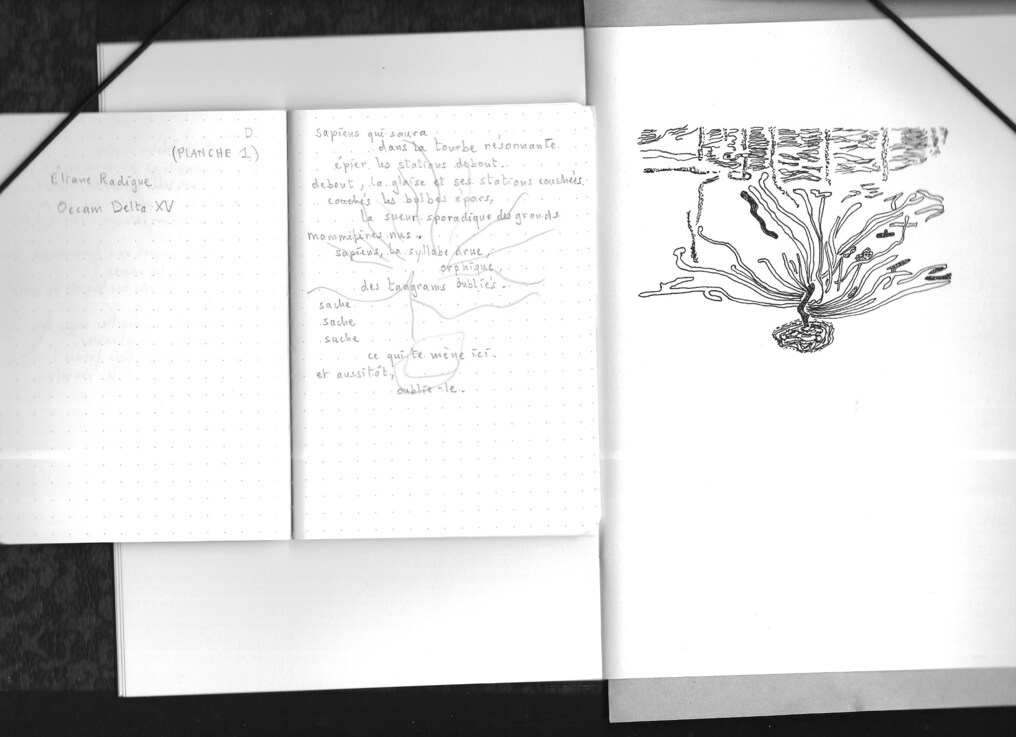 D.
(PLANCHE 1)
Eliane Radigue
Occam Delta XV
sapiens qui saura
dans la tourbe résonnante
épier les statiques debout.
debout, la glaise et ses stations couchées,
couchés les bulbes épars,
la sueur sporadique des grands
mammifères nus.
sapiens, la syllabe drue,
orphique,
des tangrams oubliés.
sache
sache
sache
ce qui te mène ici.
et aussitôt,
oublie-le.